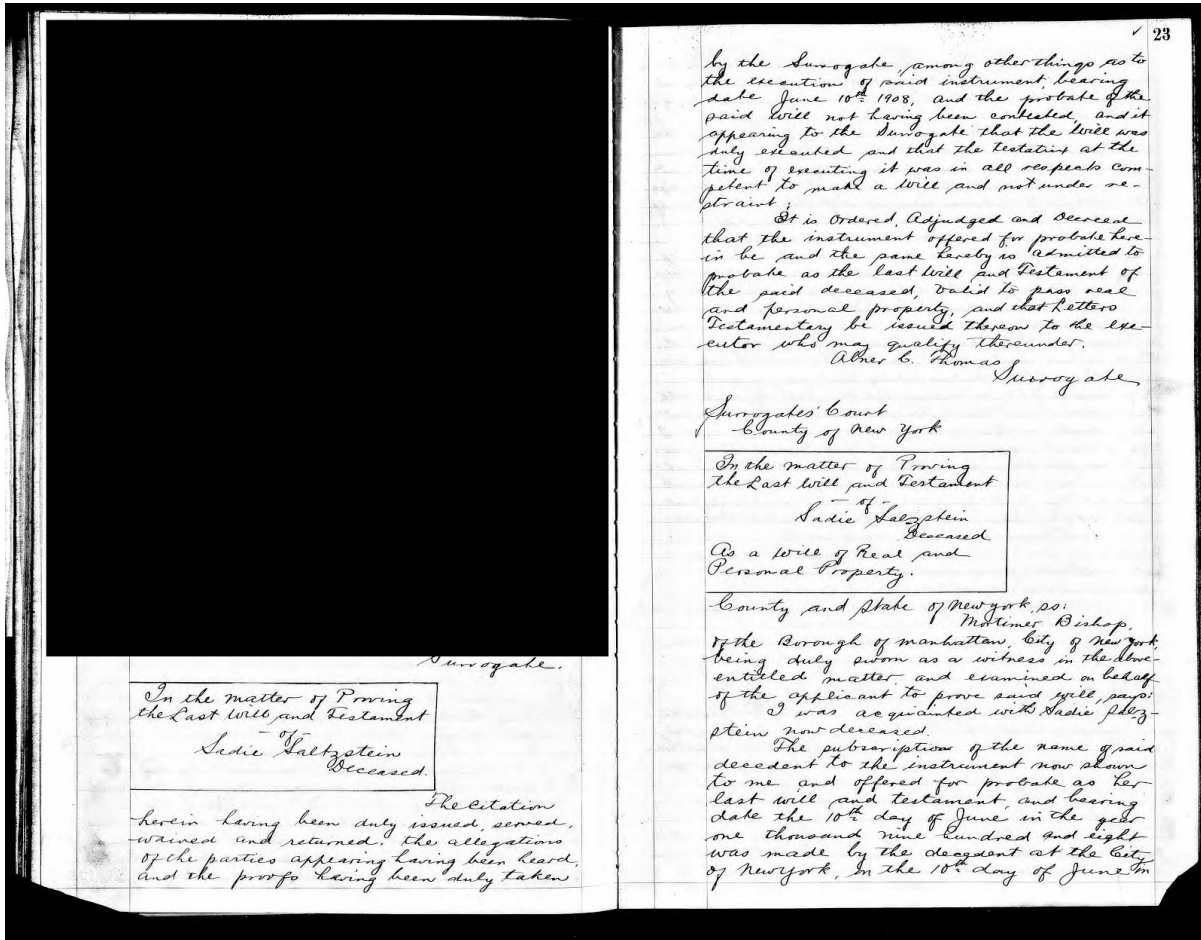 Surrogate.
In the matter of Proving
the Last Will and Testament
- of -
Sadie Saltzstein
Deceased.
The citation
herein having been duly issued, served,
waived and returned; the allegations
of the parties appearing having been heard,
and the proofs having been duly taken
23
by the Surrogate, among other things as to
the execution of said instrument, bearing
date June 10th 1908, and the probate of the
said will not having been contested, and it
appearing to the Surrogate that the Will was
duly executed and that the testatrix at the
time of executing it was in all respects com-
petent to make a Will and not under re-
straint;
It is Ordered, Adjudged and Decreed
that the instrument offered for probate here-
in be and the same hereby is admitted to
probate as the last Will and Testament of
the said deceased, valid to pass real
and personal property, and that Letters
Testamentary be issued thereon to the exe-
cutor who may qualify thereunder.
Abner C. Thomas
Surrogate
Surrogates' Court
County of New York
In the matter of Proving
the Last Will and Testament
- of -
Sadie Salzstein
Deceased
As a Will of Real and
Personal Property.
County and State of New York, ss:
Mortimer Bishop,
of the Borough of Manhattan, City of New York,
being duly sworn as a witness in the above
entitled matter, and examined on behalf
of the applicant to prove said will, says:
I was acquainted with Sadie Salz-
stein now deceased.
The subscription of the name of said
decedent to the instrument now shown
to me and offered for probate as her
last will and testament, and bearing
date the 10th day of June in the year
one thousand nine hundred and eight
was made by the decedent at the City
of New York, on the 10th day of June in